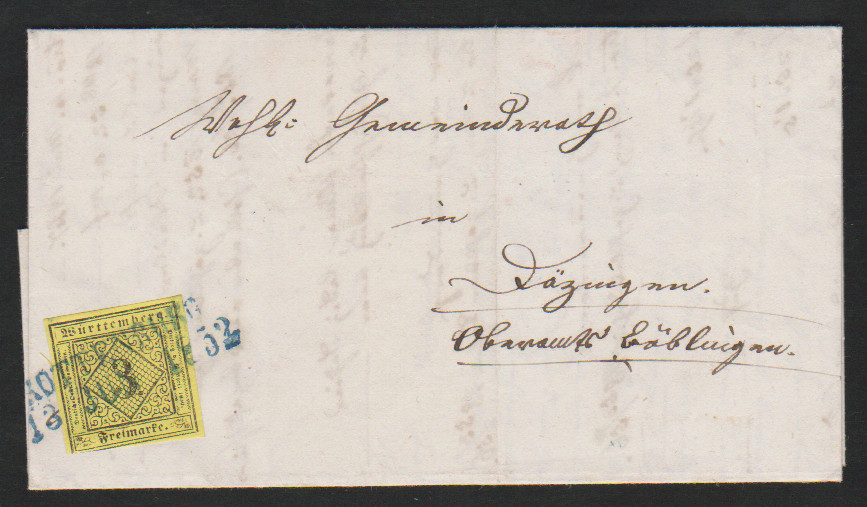 Wohl: Gemeinderath
in
Däzingen.
Oberamts Böblingen.
Württemberg
3
Freimarke.